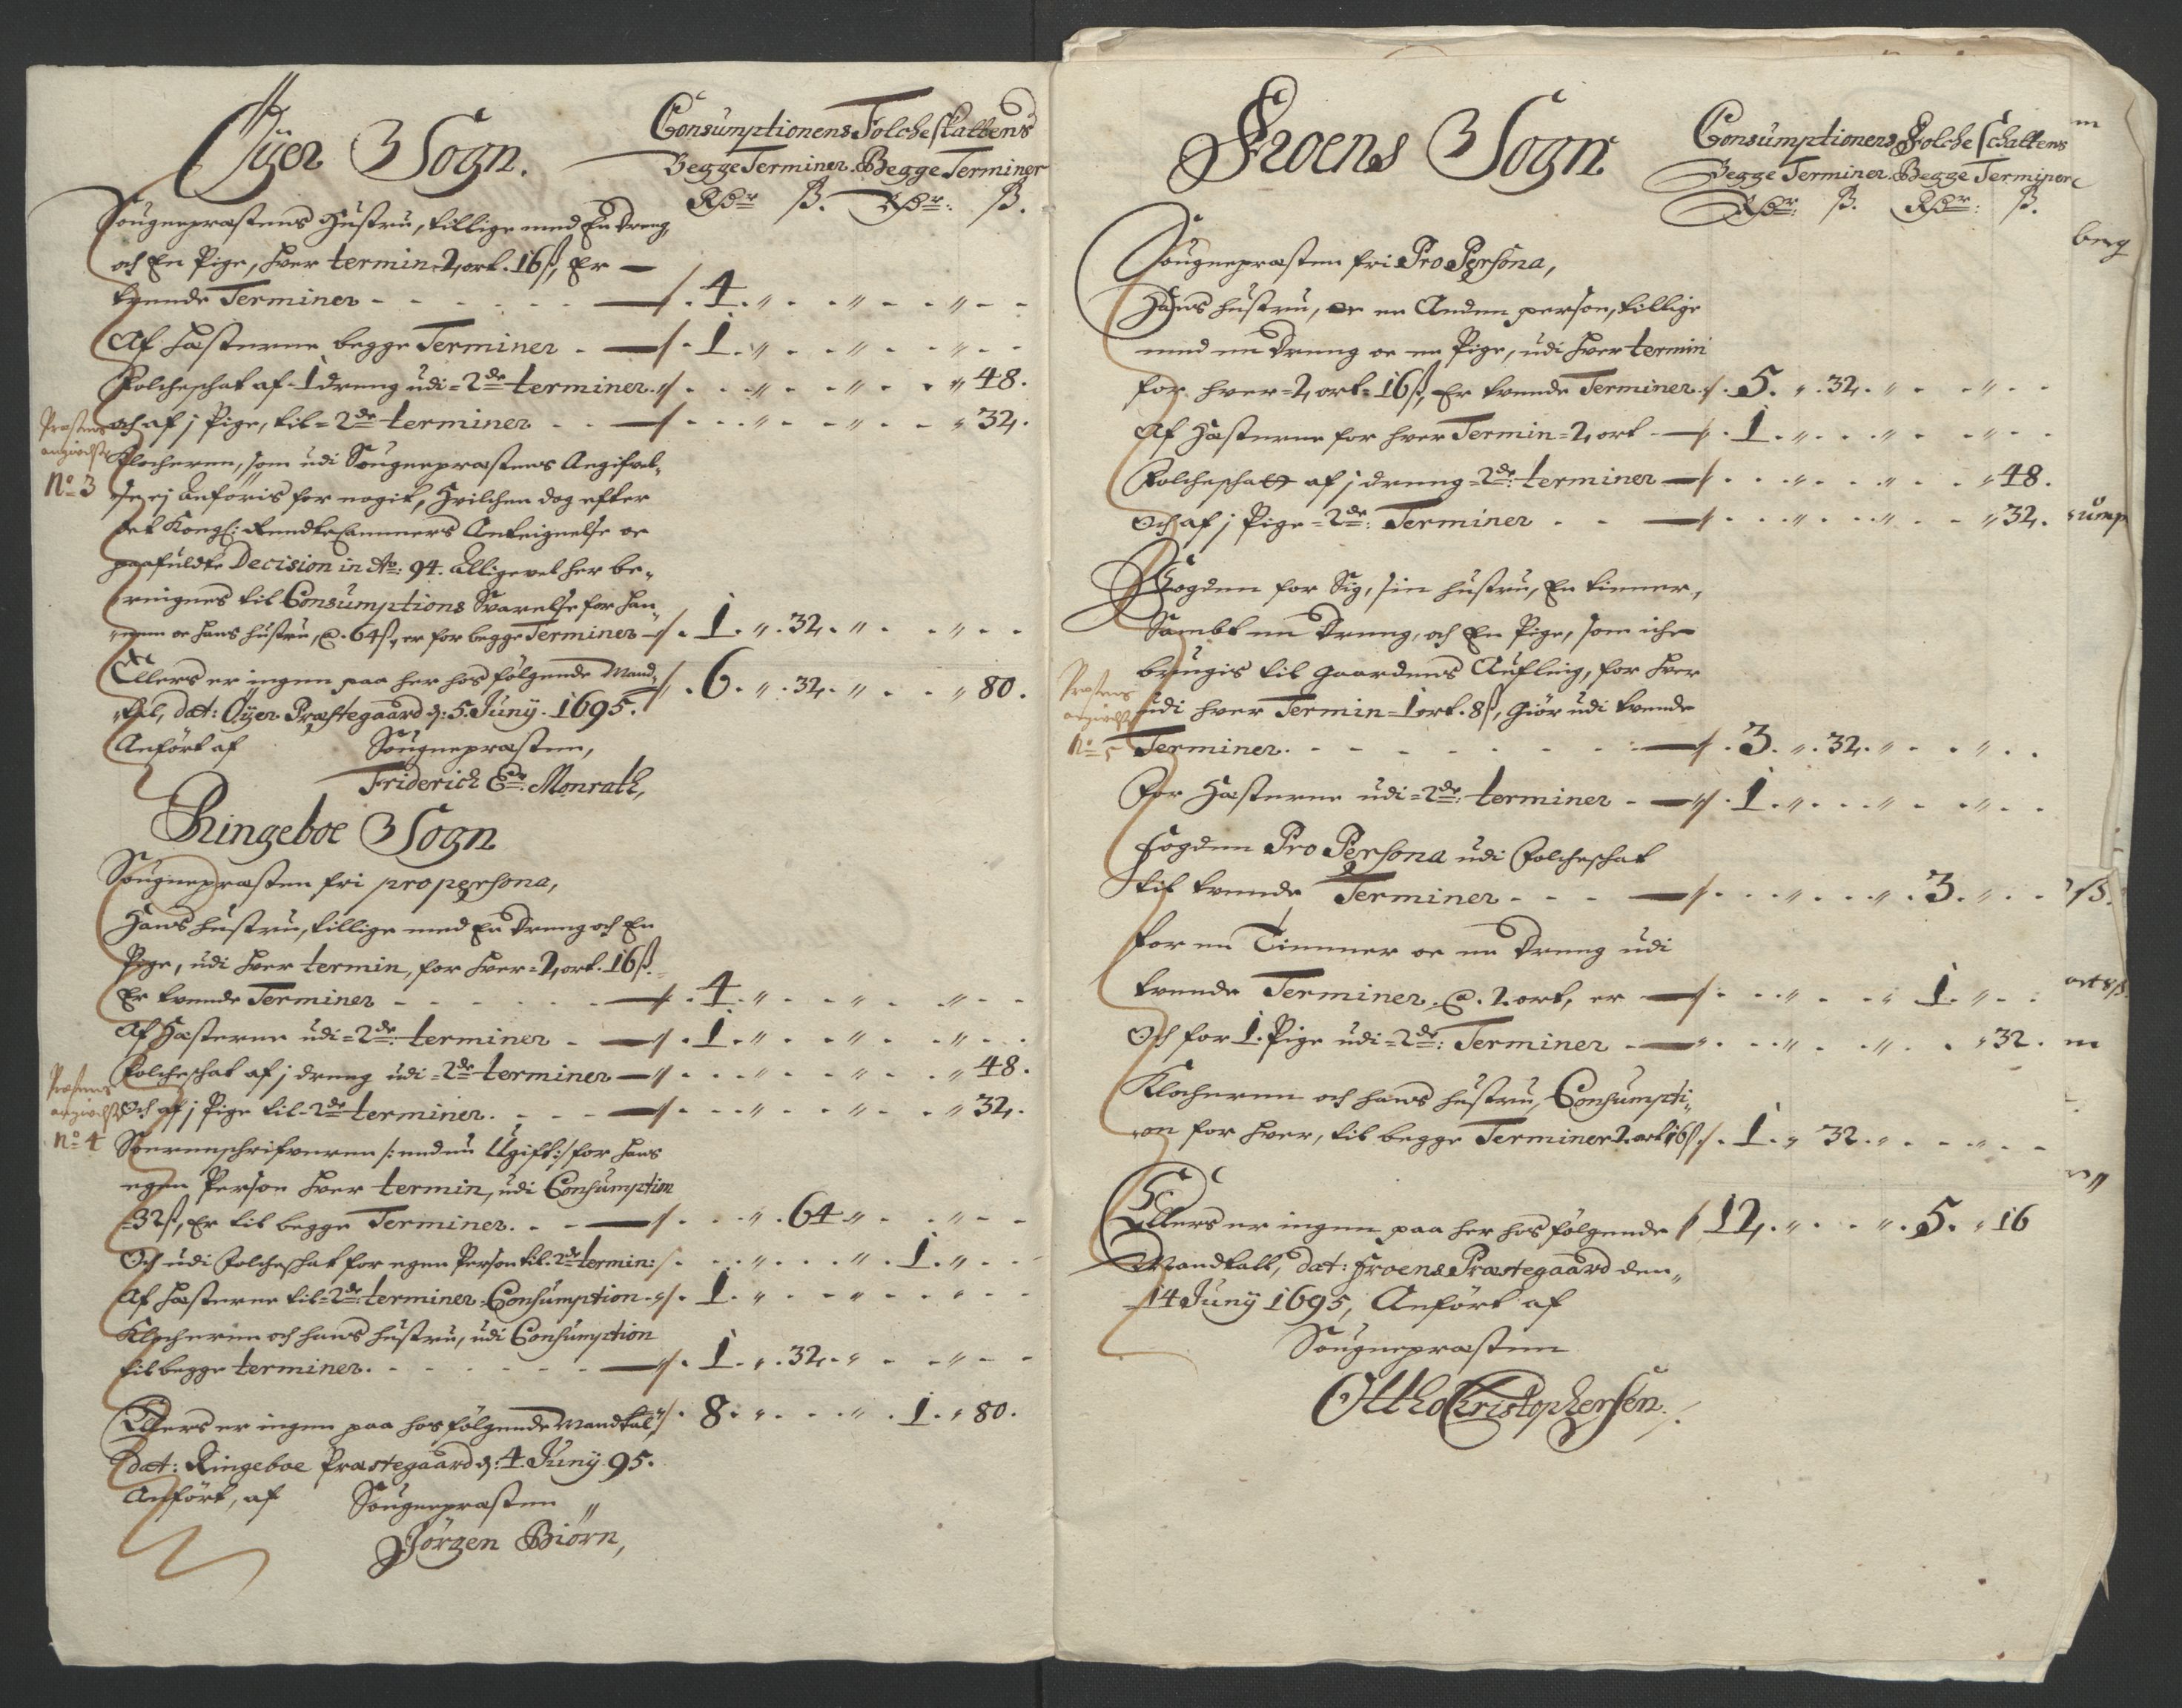 Øÿer Sogn.
Consumptionens Folcheskattens
Begge Terminer. Begge Terminer
Rdr ß. Rdr: ß.
Sougnepræstens Hustru, tillige med En dreng,
och En Pige, hver termin 2 ort. 16 ß, Er
tvende Terminer - 4. " - " - "
Af Hæsterne begge Terminer - 1. " - " - "
Folcheschat af 1 dreng udi 2de terminer. " - " - " 48.
och af j Pige, til 2de terminer - " - " - " 32.
Præstens
angivelse
No 3
Klocheren, som udi Sougnepræstens Angifvel-
se, ej Anføris for nogit, Hvilchen dog efter
det Kongl: Rendte Cammers Anteignelse oc
paafuldte Decision in Ao: 94. Alligevel her be-
reignes til Consumptions Svarelse for Han-
nem oc hans hustru, @. 64 ß, er for begge Terminer 1. " 32. " - "
Ellers er ingen paa her hos følgende Mand- 6. " 32. " - " 80.
tal, dat: Øÿer Præstegaard d: 5. Junÿ. 1695.
Anført af Sougnepræsten,
Friderich Monrath,
Ringeboe Sogn
Sougnepræsten fri pro persona,
Hans hustru, tillige med En dreng och En
Pige, udi hver termin, for hver 2 ort. 16 ß.
Er tvende Terminer - 4. " - " - "
Af Hæsterne udi 2de: terminer - 1. " - " - "
Folcheschat af j dreng udi 2de terminer - " - " - " 48.
Och af j Pige til 2de terminer. - " - " - " 32.
Præstens
angivelse
No 4
Sorenschrifveren /: endnu Ugift :/ for hans
egen Person hver termin, udi Consumption
32 ß, Er til begge Terminer. - " 64 " - "
Och udi Folcheschat for egen Person til 2de termin: " - " 1. "
Af Hæsterne til 2de: terminer Consumption. 1. " - " - "
Klocheren och hans hustru, udi Consumption
til begge terminer. - 1. " 32. " - "
Ellers er ingen paa hos følgende Mandtal 8. " - " 1. " 80.
dat: Ringeboe Præstegaard d: 4. Junÿ 95.
Anført, af Sougnepræsten
Jörgen Biörn,
Froens Sogn
Consumptionens Folcheschattens
Begge Terminer. Begge Terminer
Rdr: ß. Rdr: ß.
Sougnepræsten fri Pro Persona,
Hans hustru, oc en Anden person, tillige
med en dreng oc en Pige, udi hver termin
for hver 2 ort 16 ß, Er tvende Terminer. 5. " 32. " - "
Af Hæsterne for hver Termin 2 ort - 1. " - " - "
Folcheschatt af j dreng 2de: terminer - " - " - " 48.
Och af j Pige 2de: Terminer - " - " - " 32.
Fogden for Sig, sin hustru, En tienner,
Sambt en Dreng, och En Pige, som iche
brugis til gaardens Aufling, for hver
udi hver Termin 1 ort. 8 ß, Giør udi tvende
Terminer. - 3. " 32. " - "
Præstens
angivelse
No 5
For Hæsterne udi 2de: terminer - 1. " - " - "
Fogden Pro Persona udi Folcheschat
til tvende Terminer - " - " 3. "
For en Tienner oc en dreng udi
tvende Terminer, @. 2 ort, er - " - " 1. "
Och for 1. Pige udi 2de: Terminer - " - " - " 32.
Klocheren och hans hustru, Consumpti-
on for hver, til begge Terminer 2. ort 16 ß. 1. " 32. " - "
Ellers er ingen paa her hos følgende 12. " - " 5. " 16
Mandtall, dat: Froens Præstegaard den
14 Junÿ 1695, Anført af
Sougnepræsten
Otto Christophersen.